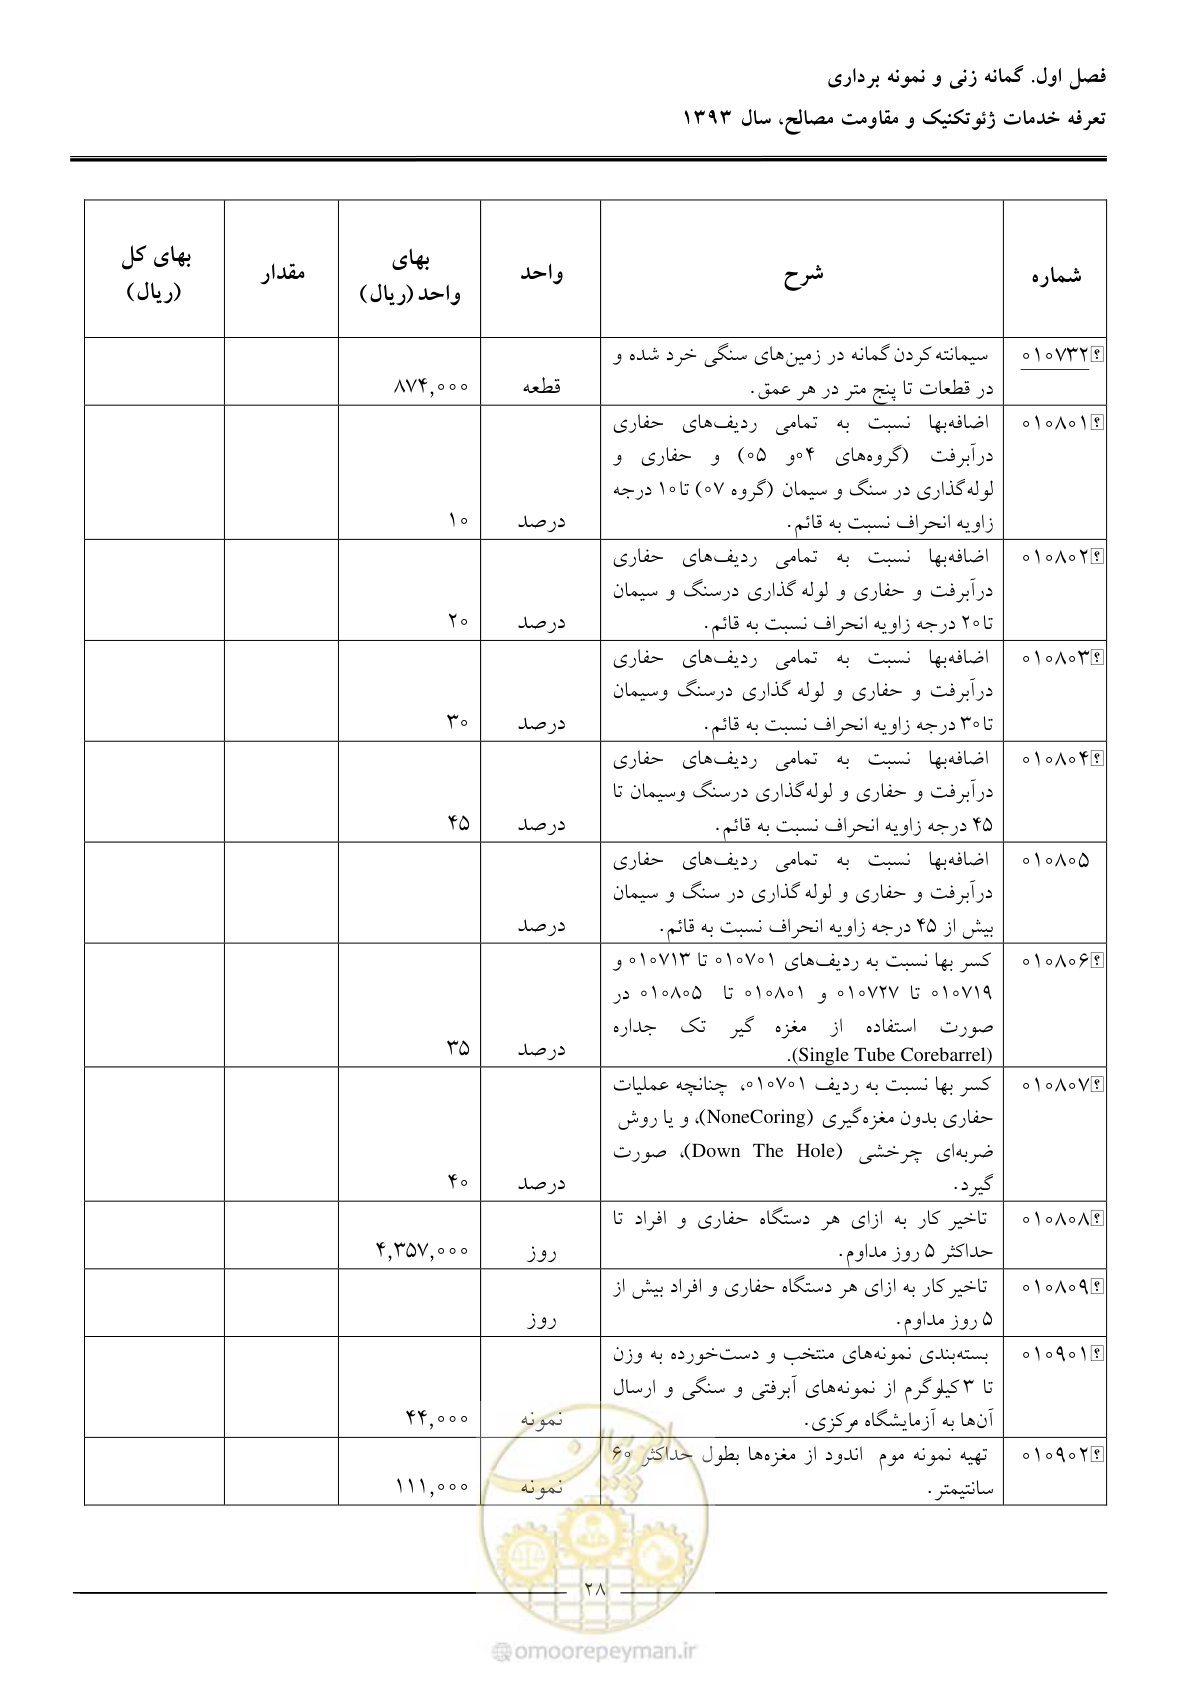 فصل اول. گمانه زنی و نمونه برداری
تعرفه خدمات ژئوتکنیک و مقاومت مصالح، سال ۱۳۹۳
شماره شرح واحد بهای واحد (ریال) مقدار بهای کل (ریال)
۰۱۰۷۳۲ سیمانته کردن گمانه در زمین‌های سنگی خرد شده و
در قطعات تا پنج متر در هر عمق. قطعه ۸۷۴,۰۰۰
۰۱۰۸۰۱ اضافه‌بها نسبت به تمامی ردیف‌های حفاری
درآبرفت (گروه‌های ۰۴و ۰۵) و حفاری و
لوله‌گذاری در سنگ و سیمان (گروه ۰۷) تا۱۰ درجه
زاویه انحراف نسبت به قائم. درصد ۱۰
۰۱۰۸۰۲ اضافه‌بها نسبت به تمامی ردیف‌های حفاری
درآبرفت و حفاری و لوله گذاری درسنگ و سیمان
تا۲۰ درجه زاویه انحراف نسبت به قائم. درصد ۲۰
۰۱۰۸۰۳ اضافه‌بها نسبت به تمامی ردیف‌های حفاری
درآبرفت و حفاری و لوله گذاری درسنگ وسیمان
تا۳۰ درجه زاویه انحراف نسبت به قائم. درصد ۳۰
۰۱۰۸۰۴ اضافه‌بها نسبت به تمامی ردیف‌های حفاری
درآبرفت و حفاری و لوله‌گذاری درسنگ وسیمان تا
۴۵ درجه زاویه انحراف نسبت به قائم. درصد ۴۵
۰۱۰۸۰۵ اضافه‌بها نسبت به تمامی ردیف‌های حفاری
درآبرفت و حفاری و لوله گذاری در سنگ و سیمان
بیش از ۴۵ درجه زاویه انحراف نسبت به قائم. درصد
۰۱۰۸۰۶ کسر بها نسبت به ردیف‌های ۰۱۰۷۰۱ تا ۰۱۰۷۱۳ و
۰۱۰۷۱۹ تا ۰۱۰۷۲۷ و ۰۱۰۸۰۱ تا ۰۱۰۸۰۵ در
صورت استفاده از مغزه گیر تک جداره
(Single Tube Corebarrel). درصد ۳۵
۰۱۰۸۰۷ کسر بها نسبت به ردیف ۰۱۰۷۰۱، چنانچه عملیات
حفاری بدون مغزه‌گیری (NoneCoring)، و یا روش
ضربه‌ای چرخشی (Down The Hole)، صورت
گیرد. درصد ۴۰
۰۱۰۸۰۸ تاخیر کار به ازای هر دستگاه حفاری و افراد تا
حداکثر ۵ روز مداوم. روز ۴,۳۵۷,۰۰۰
۰۱۰۸۰۹ تاخیر کار به ازای هر دستگاه حفاری و افراد بیش از
۵ روز مداوم. روز
۰۱۰۹۰۱ بسته‌بندی نمونه‌های منتخب و دست‌خورده به وزن
تا ۳کیلوگرم از نمونه‌های آبرفتی و سنگی و ارسال
آن‌ها به آزمایشگاه مرکزی. نمونه ۴۴,۰۰۰
۰۱۰۹۰۲ تهیه نمونه موم اندود از مغزه‌ها بطول حداکثر ۶۰
سانتیمتر. نمونه ۱۱۱,۰۰۰
امور پیمان
۲۸
@omoorepeyman.ir